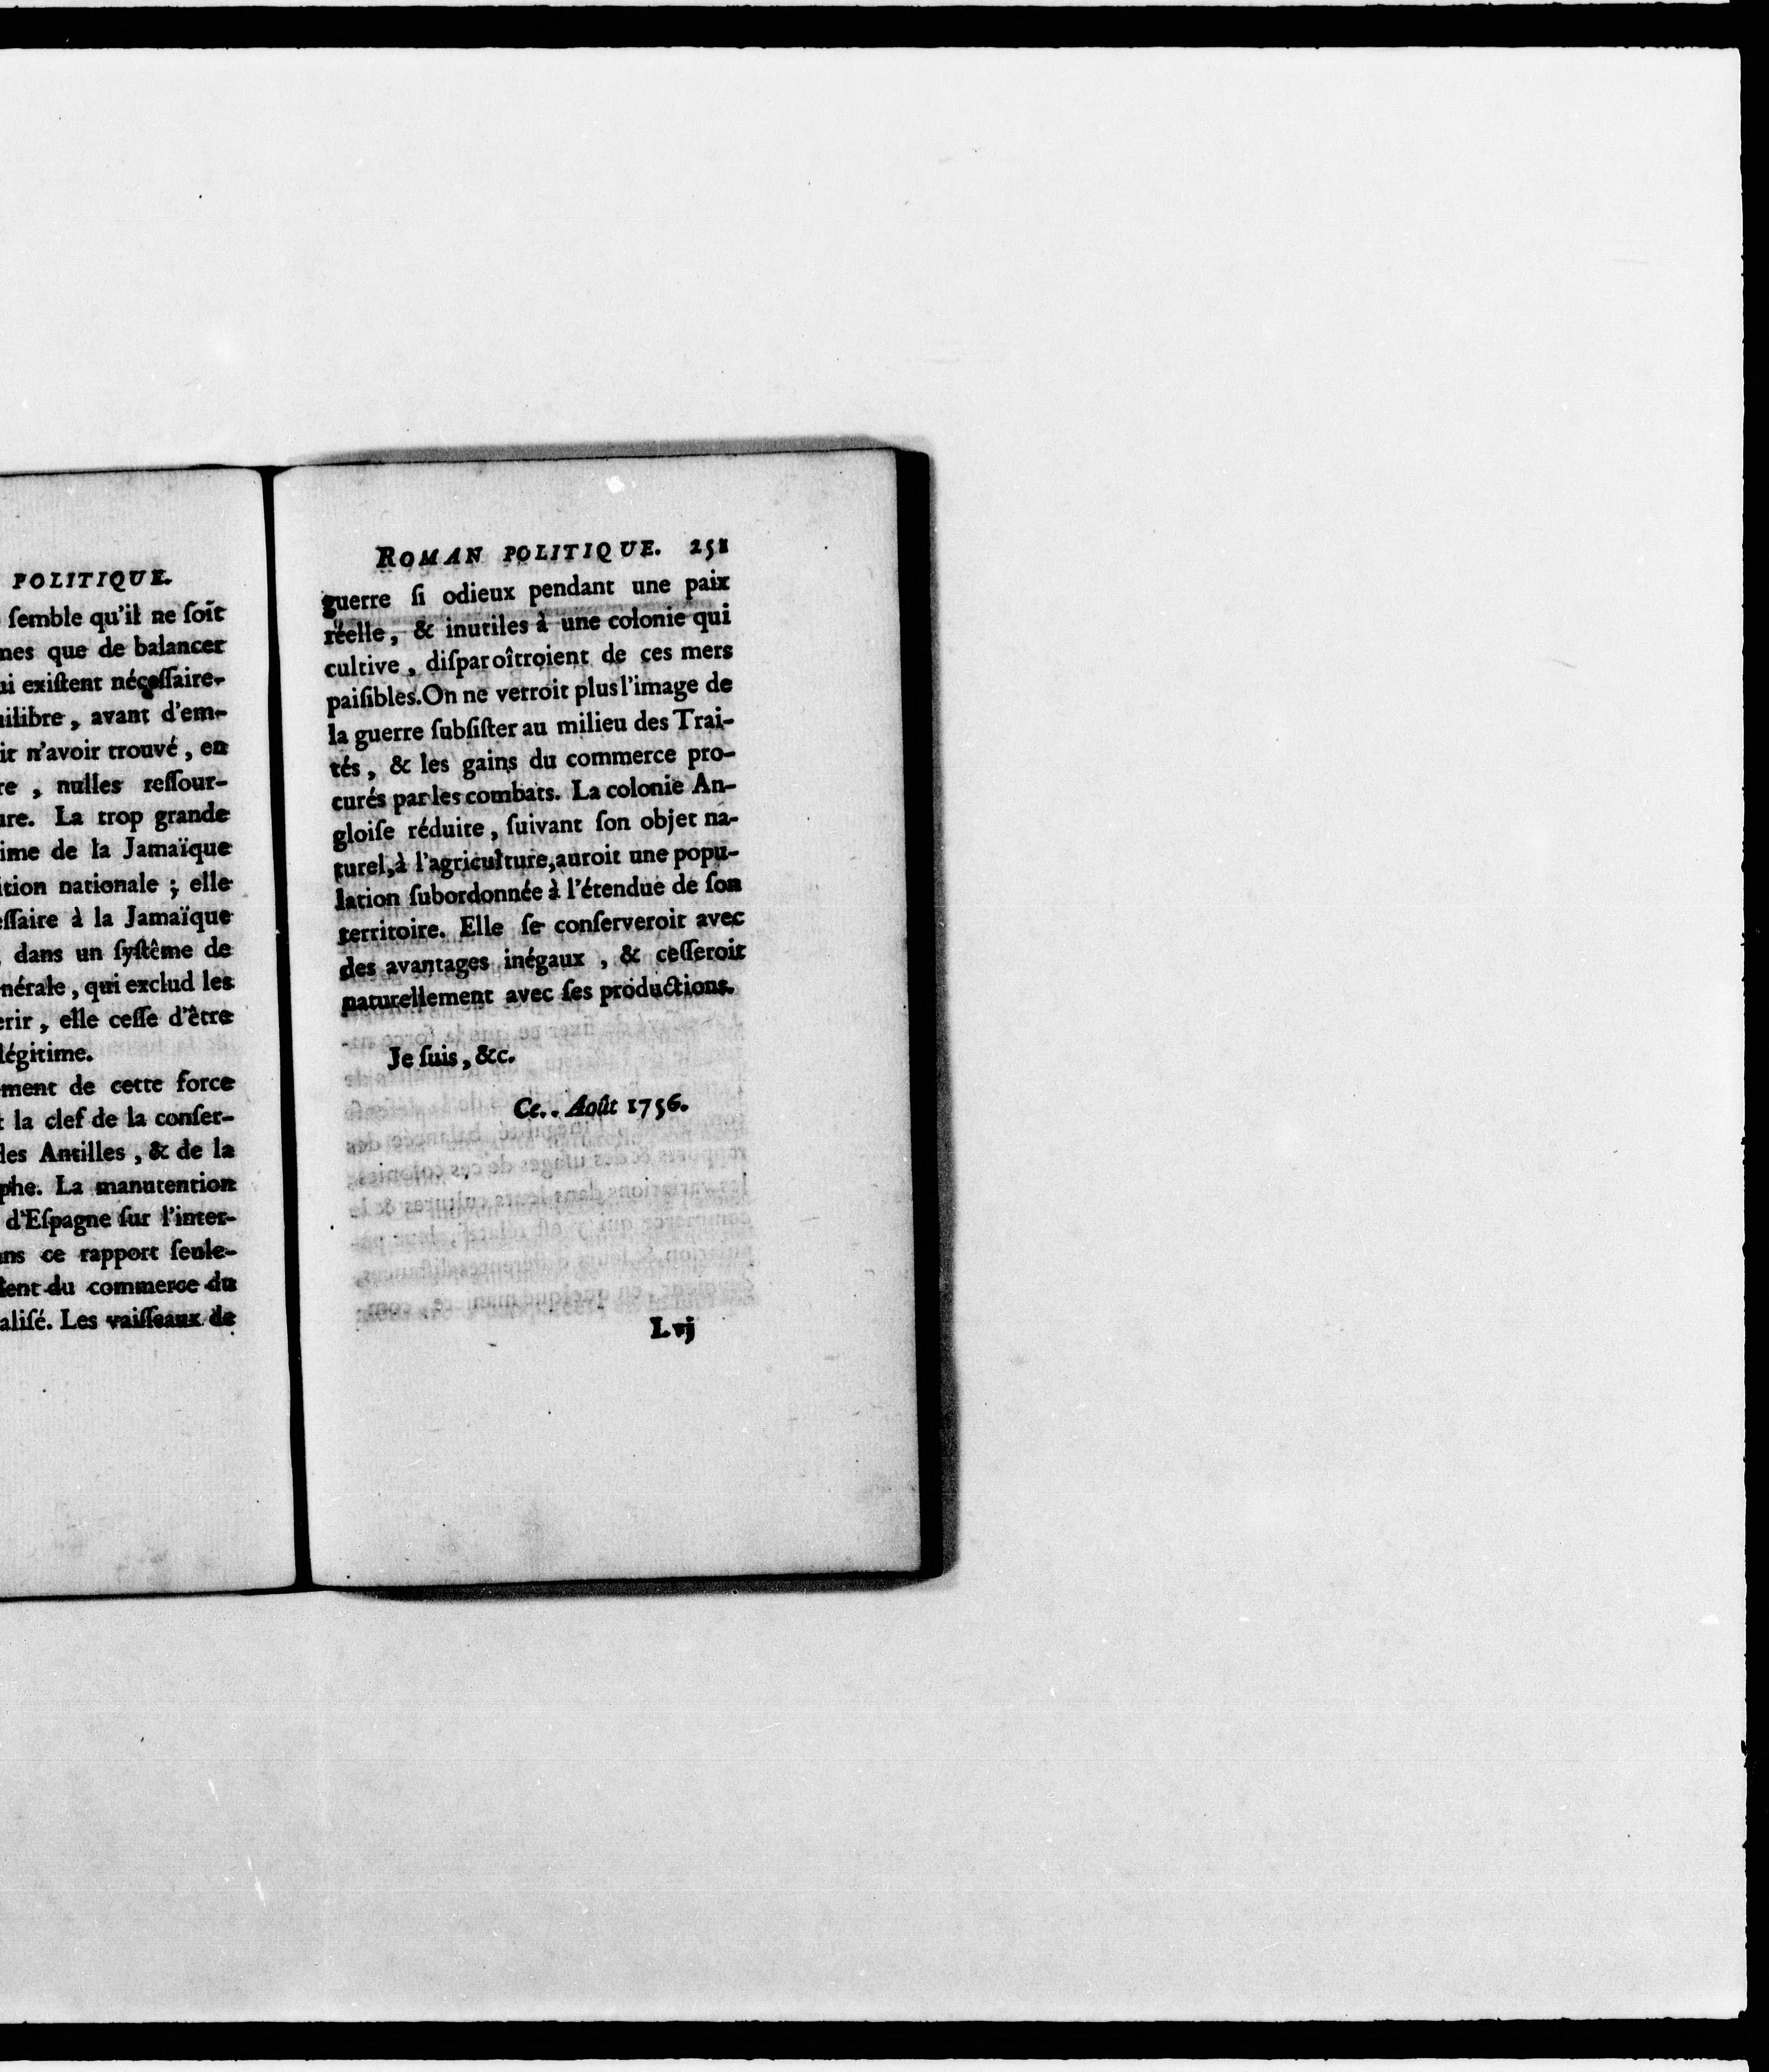 POLITIQUE.
ſemble qu'il ne ſoit
que de balancer
exiſtent néceſſaire-
avant d'em-
n'avoir trouvé, en
nulles reſſour-
La trop grande
de la Jamaïque
nationale ; elle
à la Jamaïque
dans un ſyſtême de
qui exclud les
elle ceſſe d'être
légitime.
de cette force
la clef de la conſer-
Antilles, & de la
La manutention
d'Eſpagne ſur l'inter-
ce rapport ſeule-
du commerce du
Les vaiſſeaux de
ROMAN POLITIQUE. 251
guerre ſi odieux pendant une paix
réelle, & inutiles à une colonie qui
cultive, diſparoîtroient de ces mers
paiſibles. On ne verroit plus l'image de
la guerre ſubſiſter au milieu des Trai-
tés, & les gains du commerce pro-
curés par les combats. La colonie An-
gloiſe réduite, ſuivant ſon objet na-
turel, à l'agriculture, auroit une popu-
lation ſubordonnée à l'étendue de ſon
territoire. Elle ſe conſerveroit avec
des avantages inégaux, & ceſſeroit
naturellement avec ſes productions.
Je ſuis, &c.
Ce.. Août 1756.
L vj